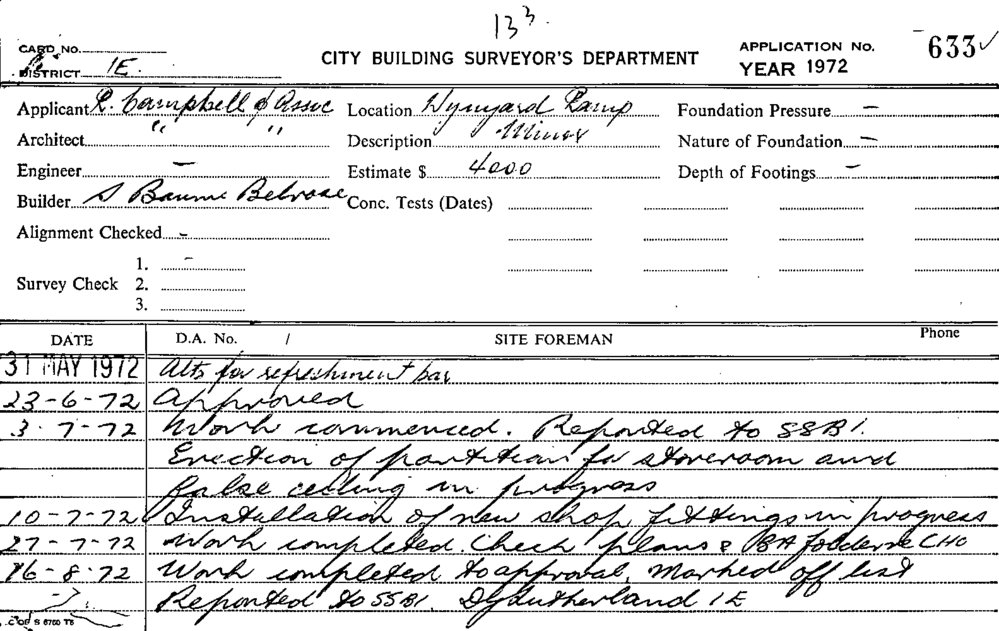 133.
CARD NO.
DISTRICT 1E.
CITY BUILDING SURVEYOR'S DEPARTMENT
APPLICATION No. 633 ✓
YEAR 1972
Applicant R. Campbell & Assoc Location Wynyard Ramp Foundation Pressure —
Architect " " Description Minor Nature of Foundation —
Engineer — Estimate $ 4000 Depth of Footings —
Builder S Baume Belrose Conc. Tests (Dates)
Alignment Checked -
Survey Check 1. -
2.
3.
DATE D.A. No. / SITE FOREMAN Phone
31 MAY 1972 Alts for refreshment bar
23-6-72 Approved
3-7-72 Work commenced. Reported to SSB1.
Erection of partition for storeroom and
false ceiling in progress
10-7-72 Installation of new shop fittings in progress
27-7-72 Work completed. Check plans & BA folder CHO
16-8-72 Work completed to approval. Marked off list
Reported to SSB1. Sutherland 1E
C OF S 6760 T5